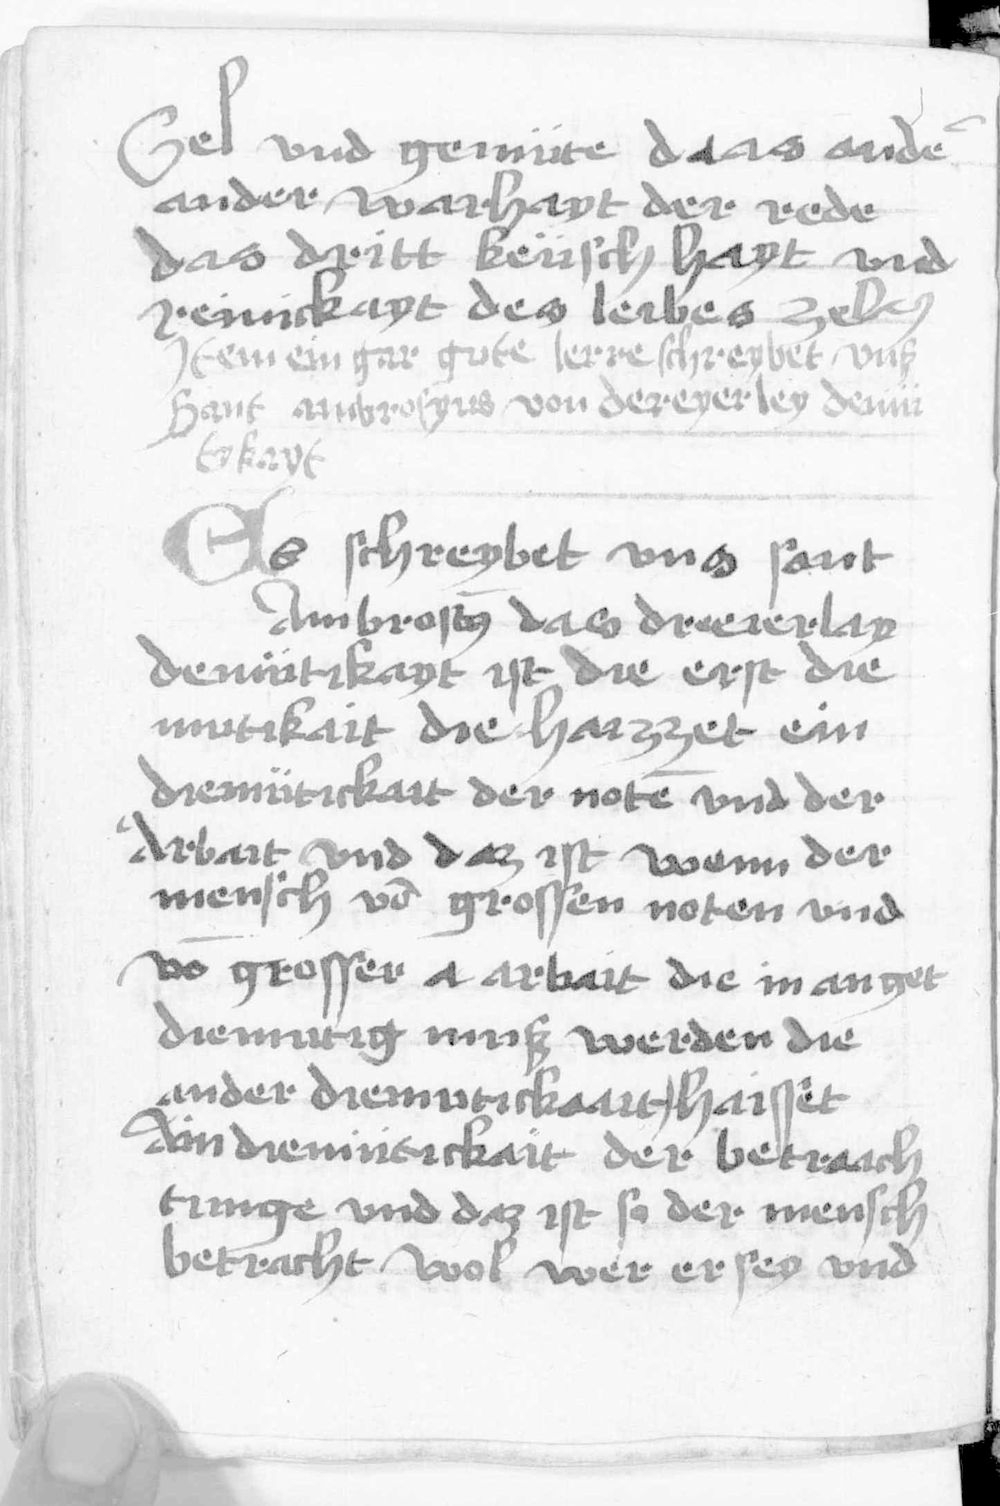 Sel vnd gemüte daas ande
ander warhayt der rede
das dritt keüsch hayt vnd
reinickayt des leibes
Item ein gar gute lerre schreybet vnß
Sant ambrosyus von dereyerley demü
tykayt
Es schreybet vns sant
Ambrosiꝰ das dreierlay
demütikayt ist die erst die
mutikait die haizzet ein
diemütickait der notē vnd der
Arbait vnd daz ist wenn der
mensch vō grossen noten vnd
vō grosser a arbait die in anget
diemutig muß werden die
ander diemutickaait haisset
Ain diemütickait der betraach
tunge vnd daz ist so der mensch
betracht wol wer er sey vnd